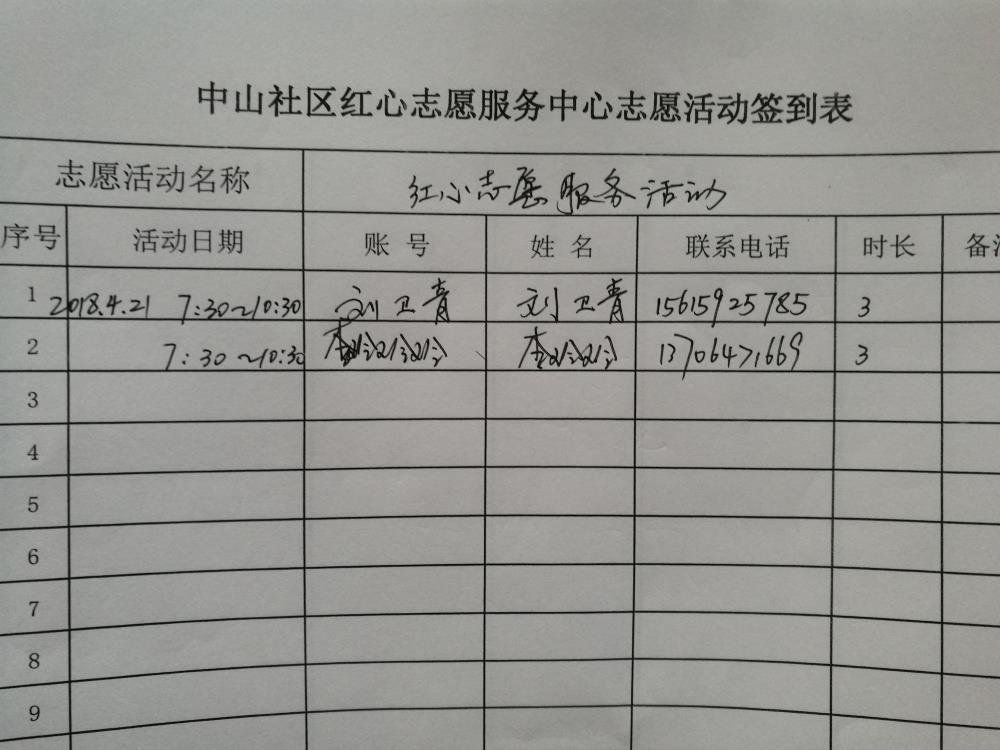 中山社区红心志愿服务中心志愿活动签到表
志愿活动名称 红心志愿服务活动
序号 活动日期 账 号 姓 名 联系电话 时长 备
1 2018.4.21 7:30~10:30 刘卫青 刘卫青 15615925785 3
2 7:30~10:30 李 李 13706471669 3
3
4
5
6
7
8
9